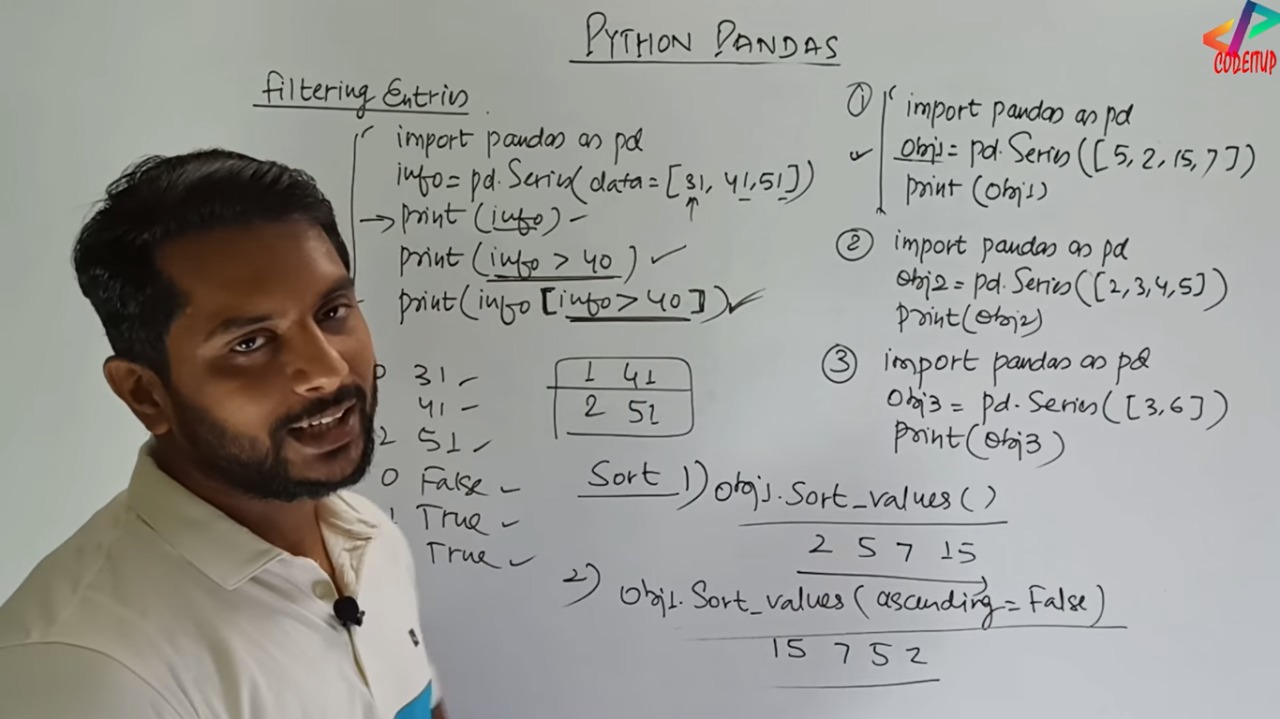 PYTHON PANDAS
CODEITUP
Filtering Entries
import pandas as pd
info = pd.Series(data = [31, 41, 51])
print (info)
print (info > 40)
print (info [info > 40])
31
41
2 51
0 False
1 True
True
1 41
2 51
① import pandas as pd
obj1 = pd.Series([5, 2, 15, 7])
print (obj1)
② import pandas as pd
obj2 = pd.Series([2, 3, 4, 5])
print (obj2)
③ import pandas as pd
obj3 = pd.Series([3, 6])
print (obj3)
Sort 1) obj1.Sort_values()
2 5 7 15
2) obj1.Sort_values(ascending = False)
15 7 5 2